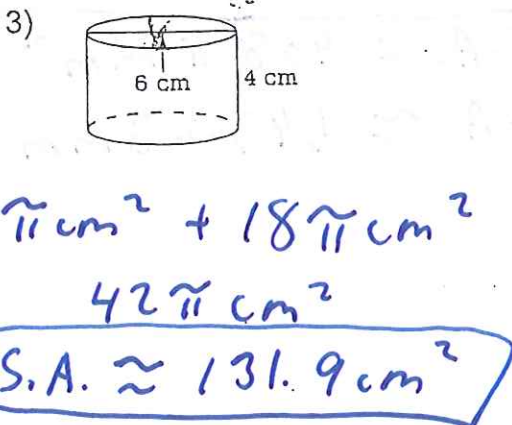 3)
6 cm 4 cm
π cm² + 18 π cm²
42 π cm²
S.A. ≈ 131.9 cm²